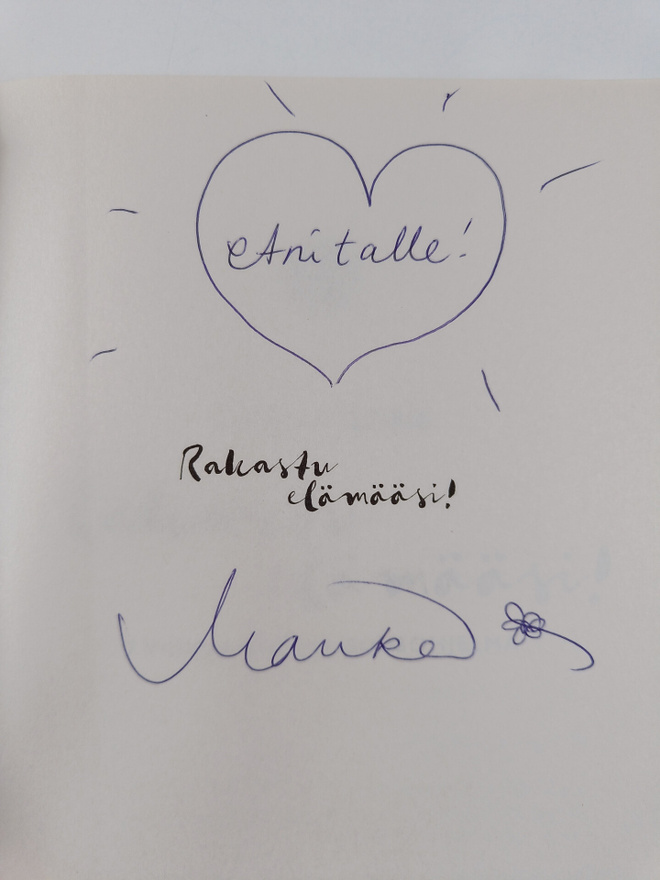 Anitalle!
Rakastu
elämääsi!